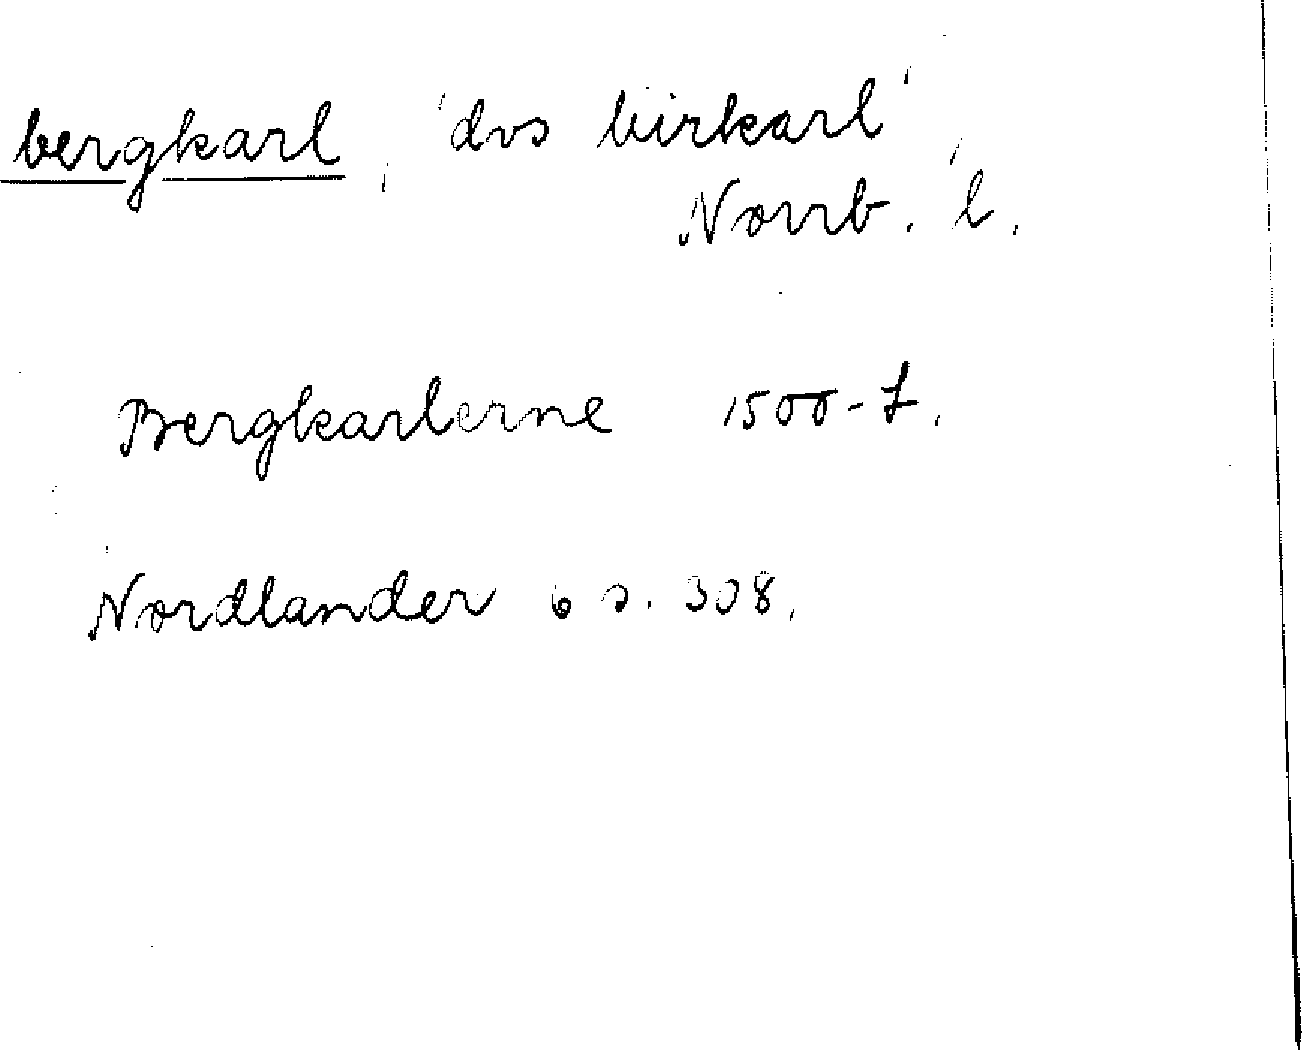 bergkarl, 'dvs birkarl',
Norrb. l.
Bergkarlerne 1500-t.
Nordlander 6 s. 308.